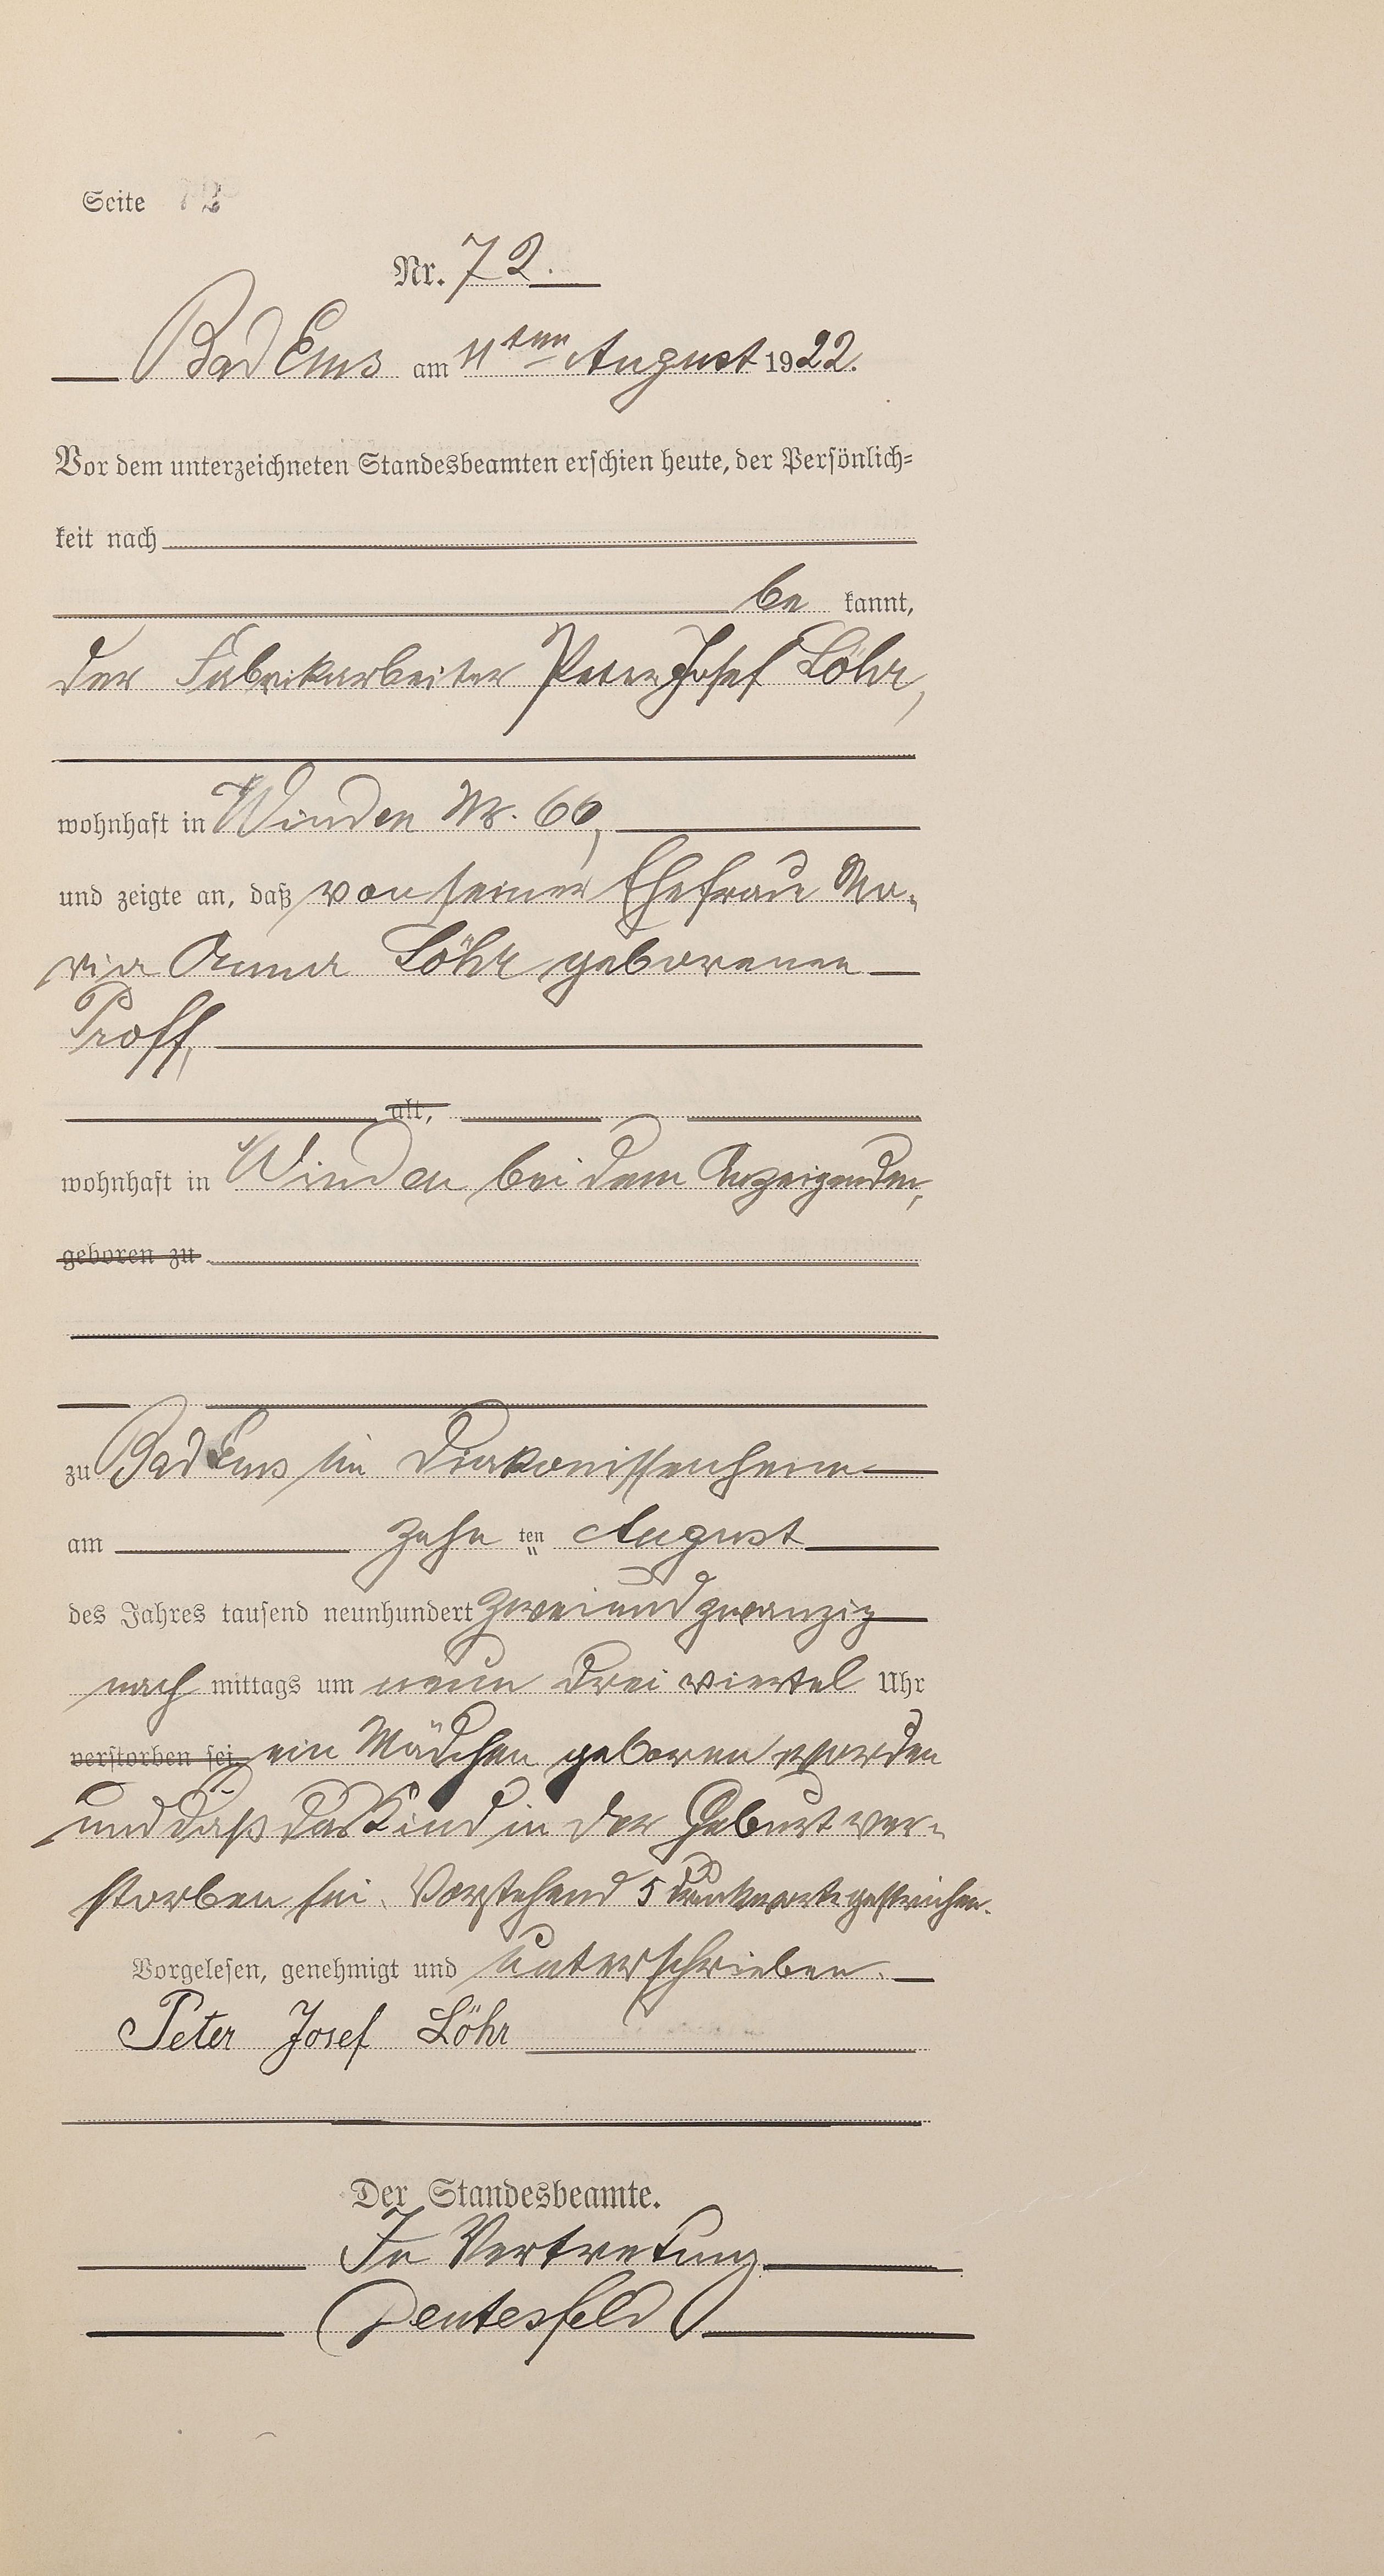 Seite 72
Nr. 72.
Bad Ems am 11ten August 1922.
Vor dem unterzeichneten Standesbeamten erschien heute, der Persönlich-
keit nach
be kannt,
der Fabrikarbeiter Peter Josef Löhr,
wohnhaft in Winden Nr. 66,
und zeigte an, daß von seiner Ehefrau Ma-
ria Anna Löhr geborenen
Proff,
alt,
wohnhaft in Winden bei dem Anzeigenden,
geboren zu
zu Bad Ems im Diakonissenheim
am zehn ten August
des Jahres tausend neunhundert zweiundzwanzig
nach mittags um neun drei viertel Uhr
verstorben sei, ein Mädchen geboren worden
und daß das Kind in der Geburt ver-
storben sei. Vorstehend 5 Druckworte gestrichen.
Vorgelesen, genehmigt und unterschrieben.
Peter Josef Löhr
Der Standesbeamte.
In Vertretung
Dentesfeld